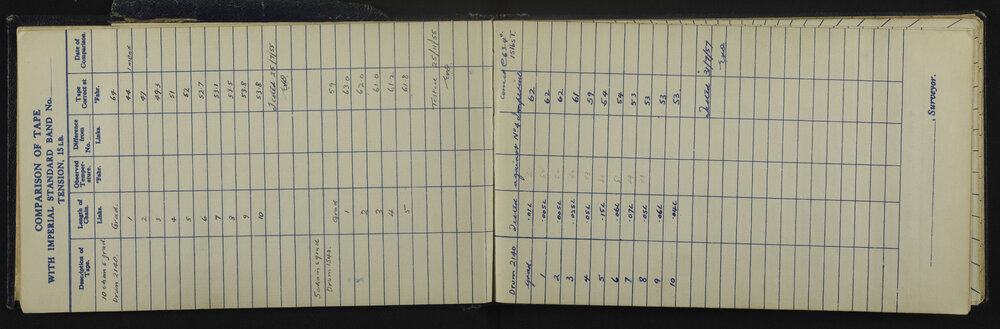 COMPARISON OF TAPE
WITH IMPERIAL STANDARD BAND No.
TENSION, 15 LB.
Description of Tape. Length of Chain. Observed Temperature. Difference from No. Tape Correct at Date of Comparison.
Links. °Fahr. Links. °Fahr.
10 chain & grad.
Drum 2140. Grad. 64
1 44
2 47
3 49.3
4 51
5 52
6 52.7
7 53.1
8 53.5
9 53.8
10 53.8
Tested 25/7/55
5 chain & grad
Drum 1540. Grad 59
1 63.0
2 62.0
3 61.0
4 61.2
5 61.8
25/11/55
Drum 2140 Tested against No 4 Imperial Correct @ 63.4°
15 lbs T.
Grad. .01L 62
1 .005L 62
2 .005L 62
3 .035L 61
4 .05L 59
5 .15L 54
6 .06L 54
7 .07L 53
8 .05L 53
9 .06L 53
10 .06L 53
Tested 3/7/57
, Surveyor.